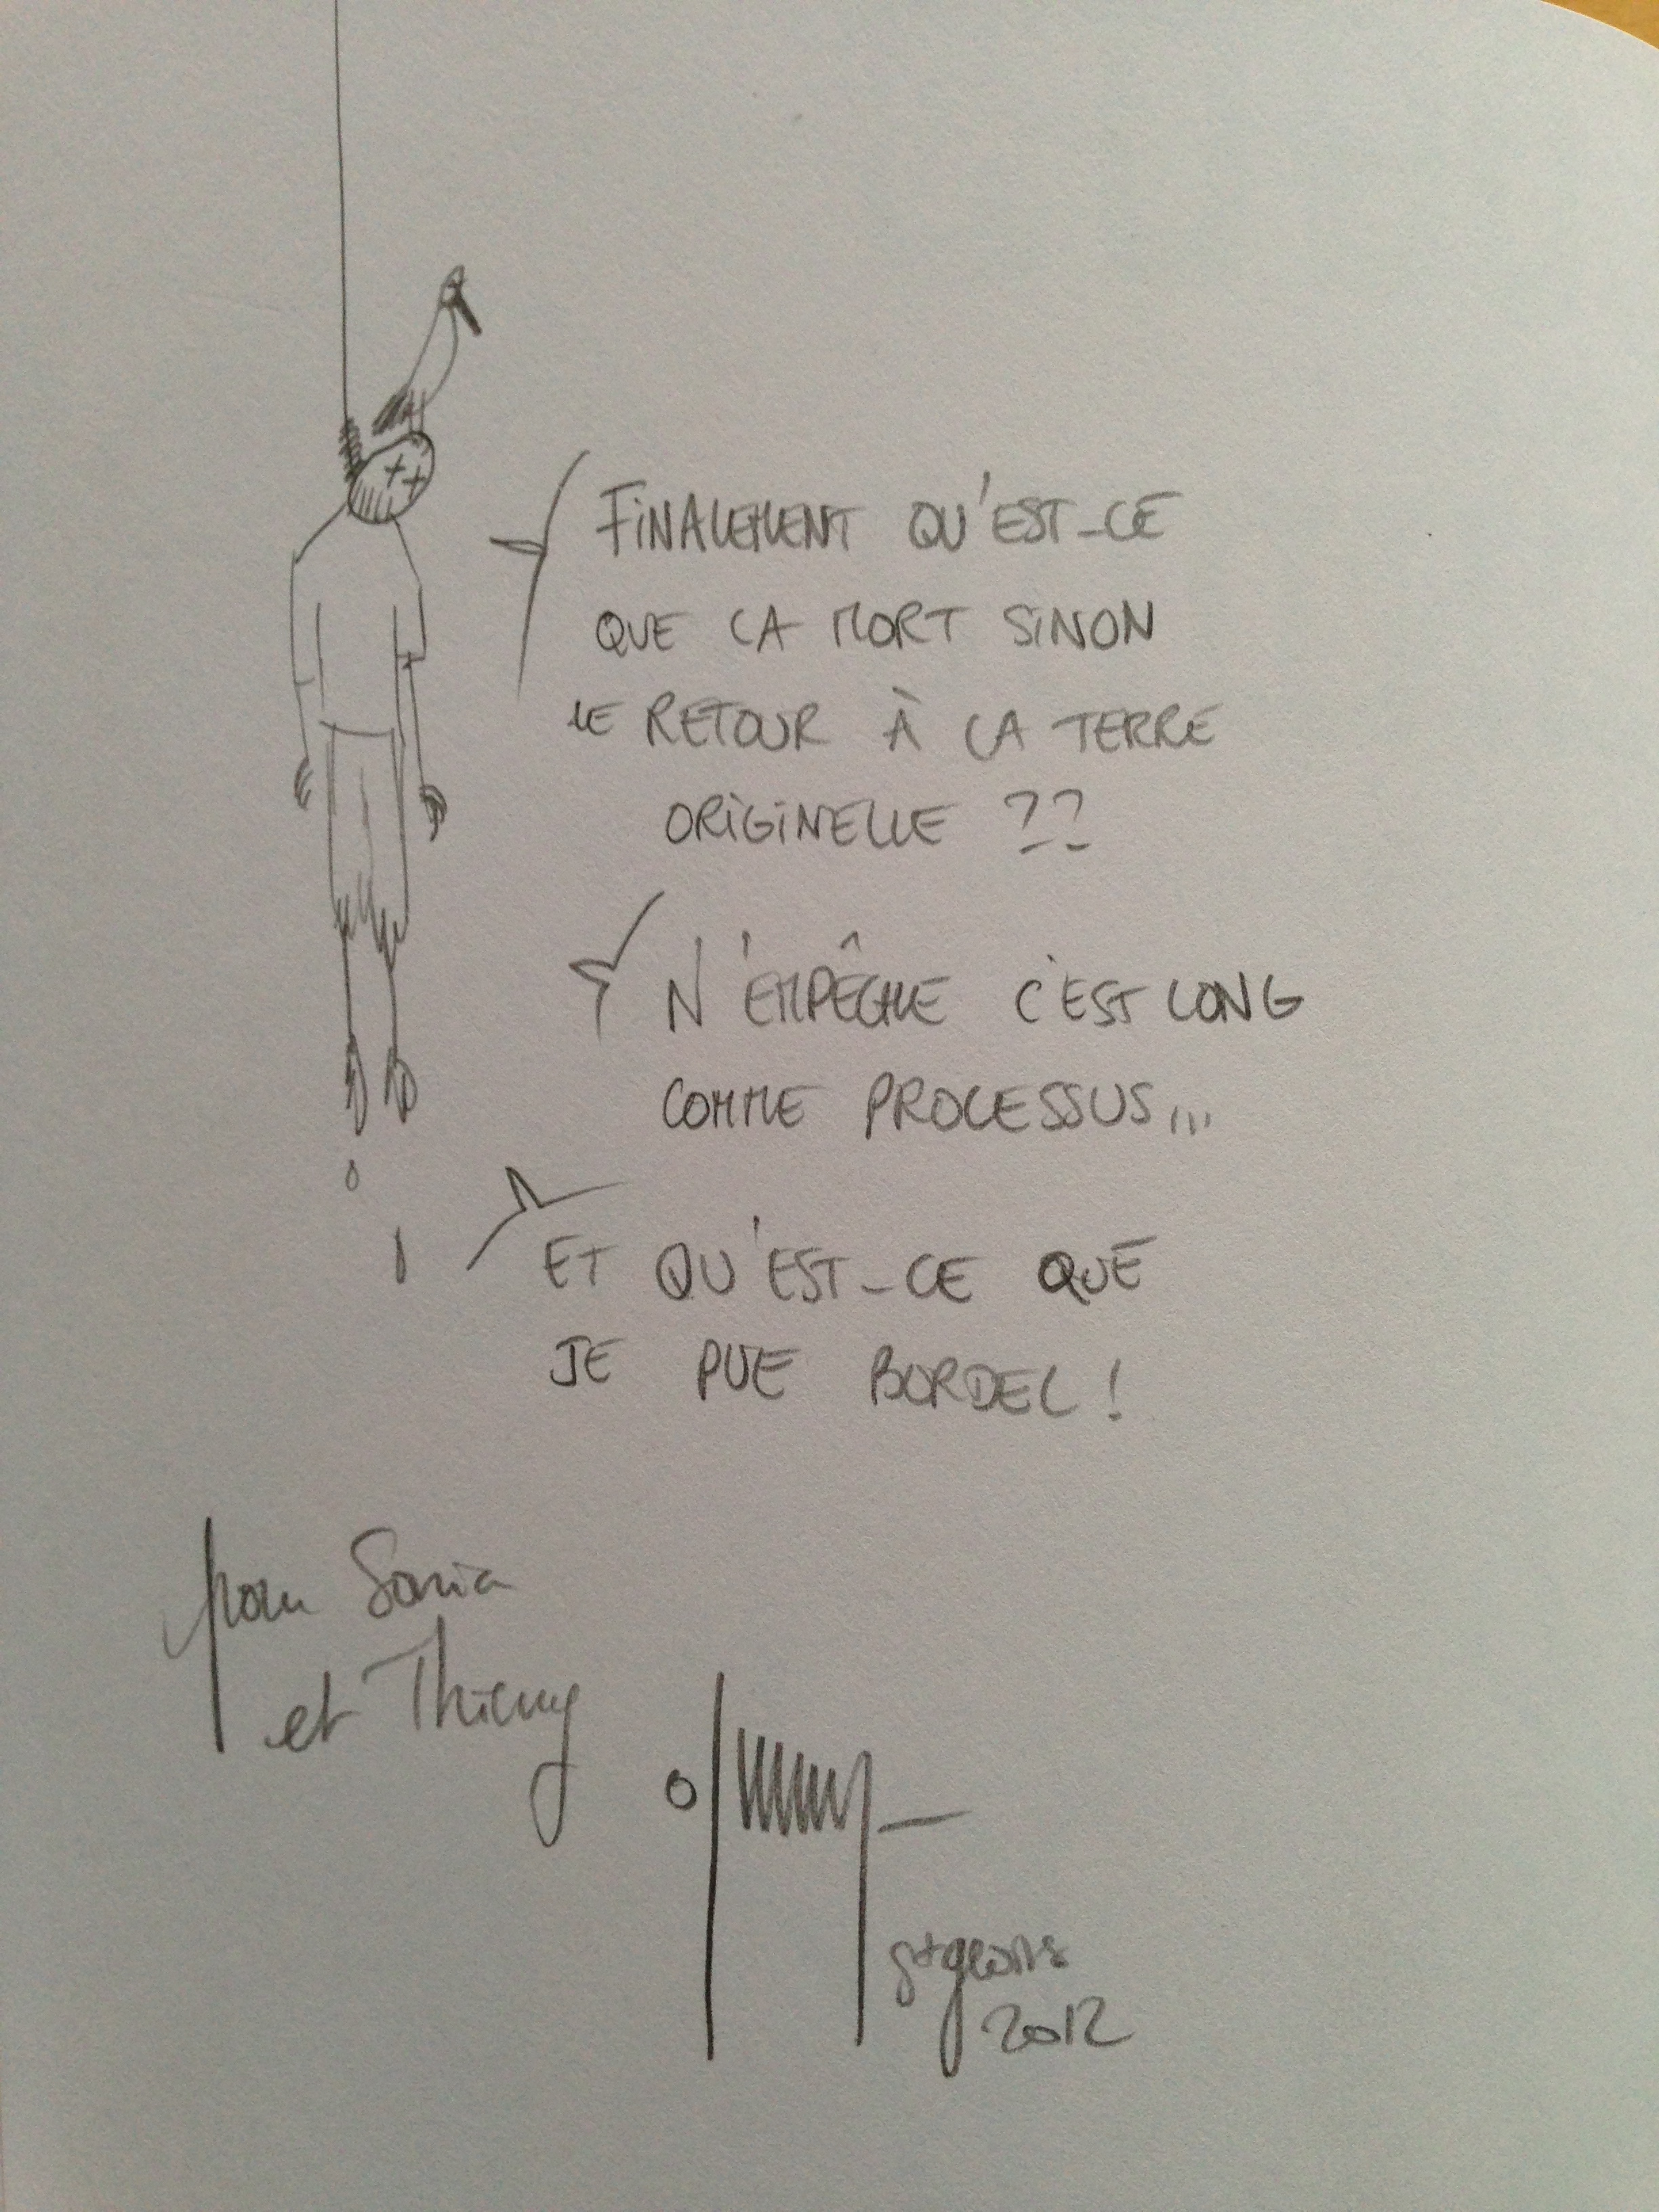 FINALEMENT QU'EST-CE
QUE LA MORT SINON
LE RETOUR À LA TERRE
ORIGINELLE ??
N'EMPÊCHE C'EST LONG
COMME PROCESSUS...
ET QU'EST-CE QUE
JE PUE BORDEL !
pour Sonia
et Thierry
2012